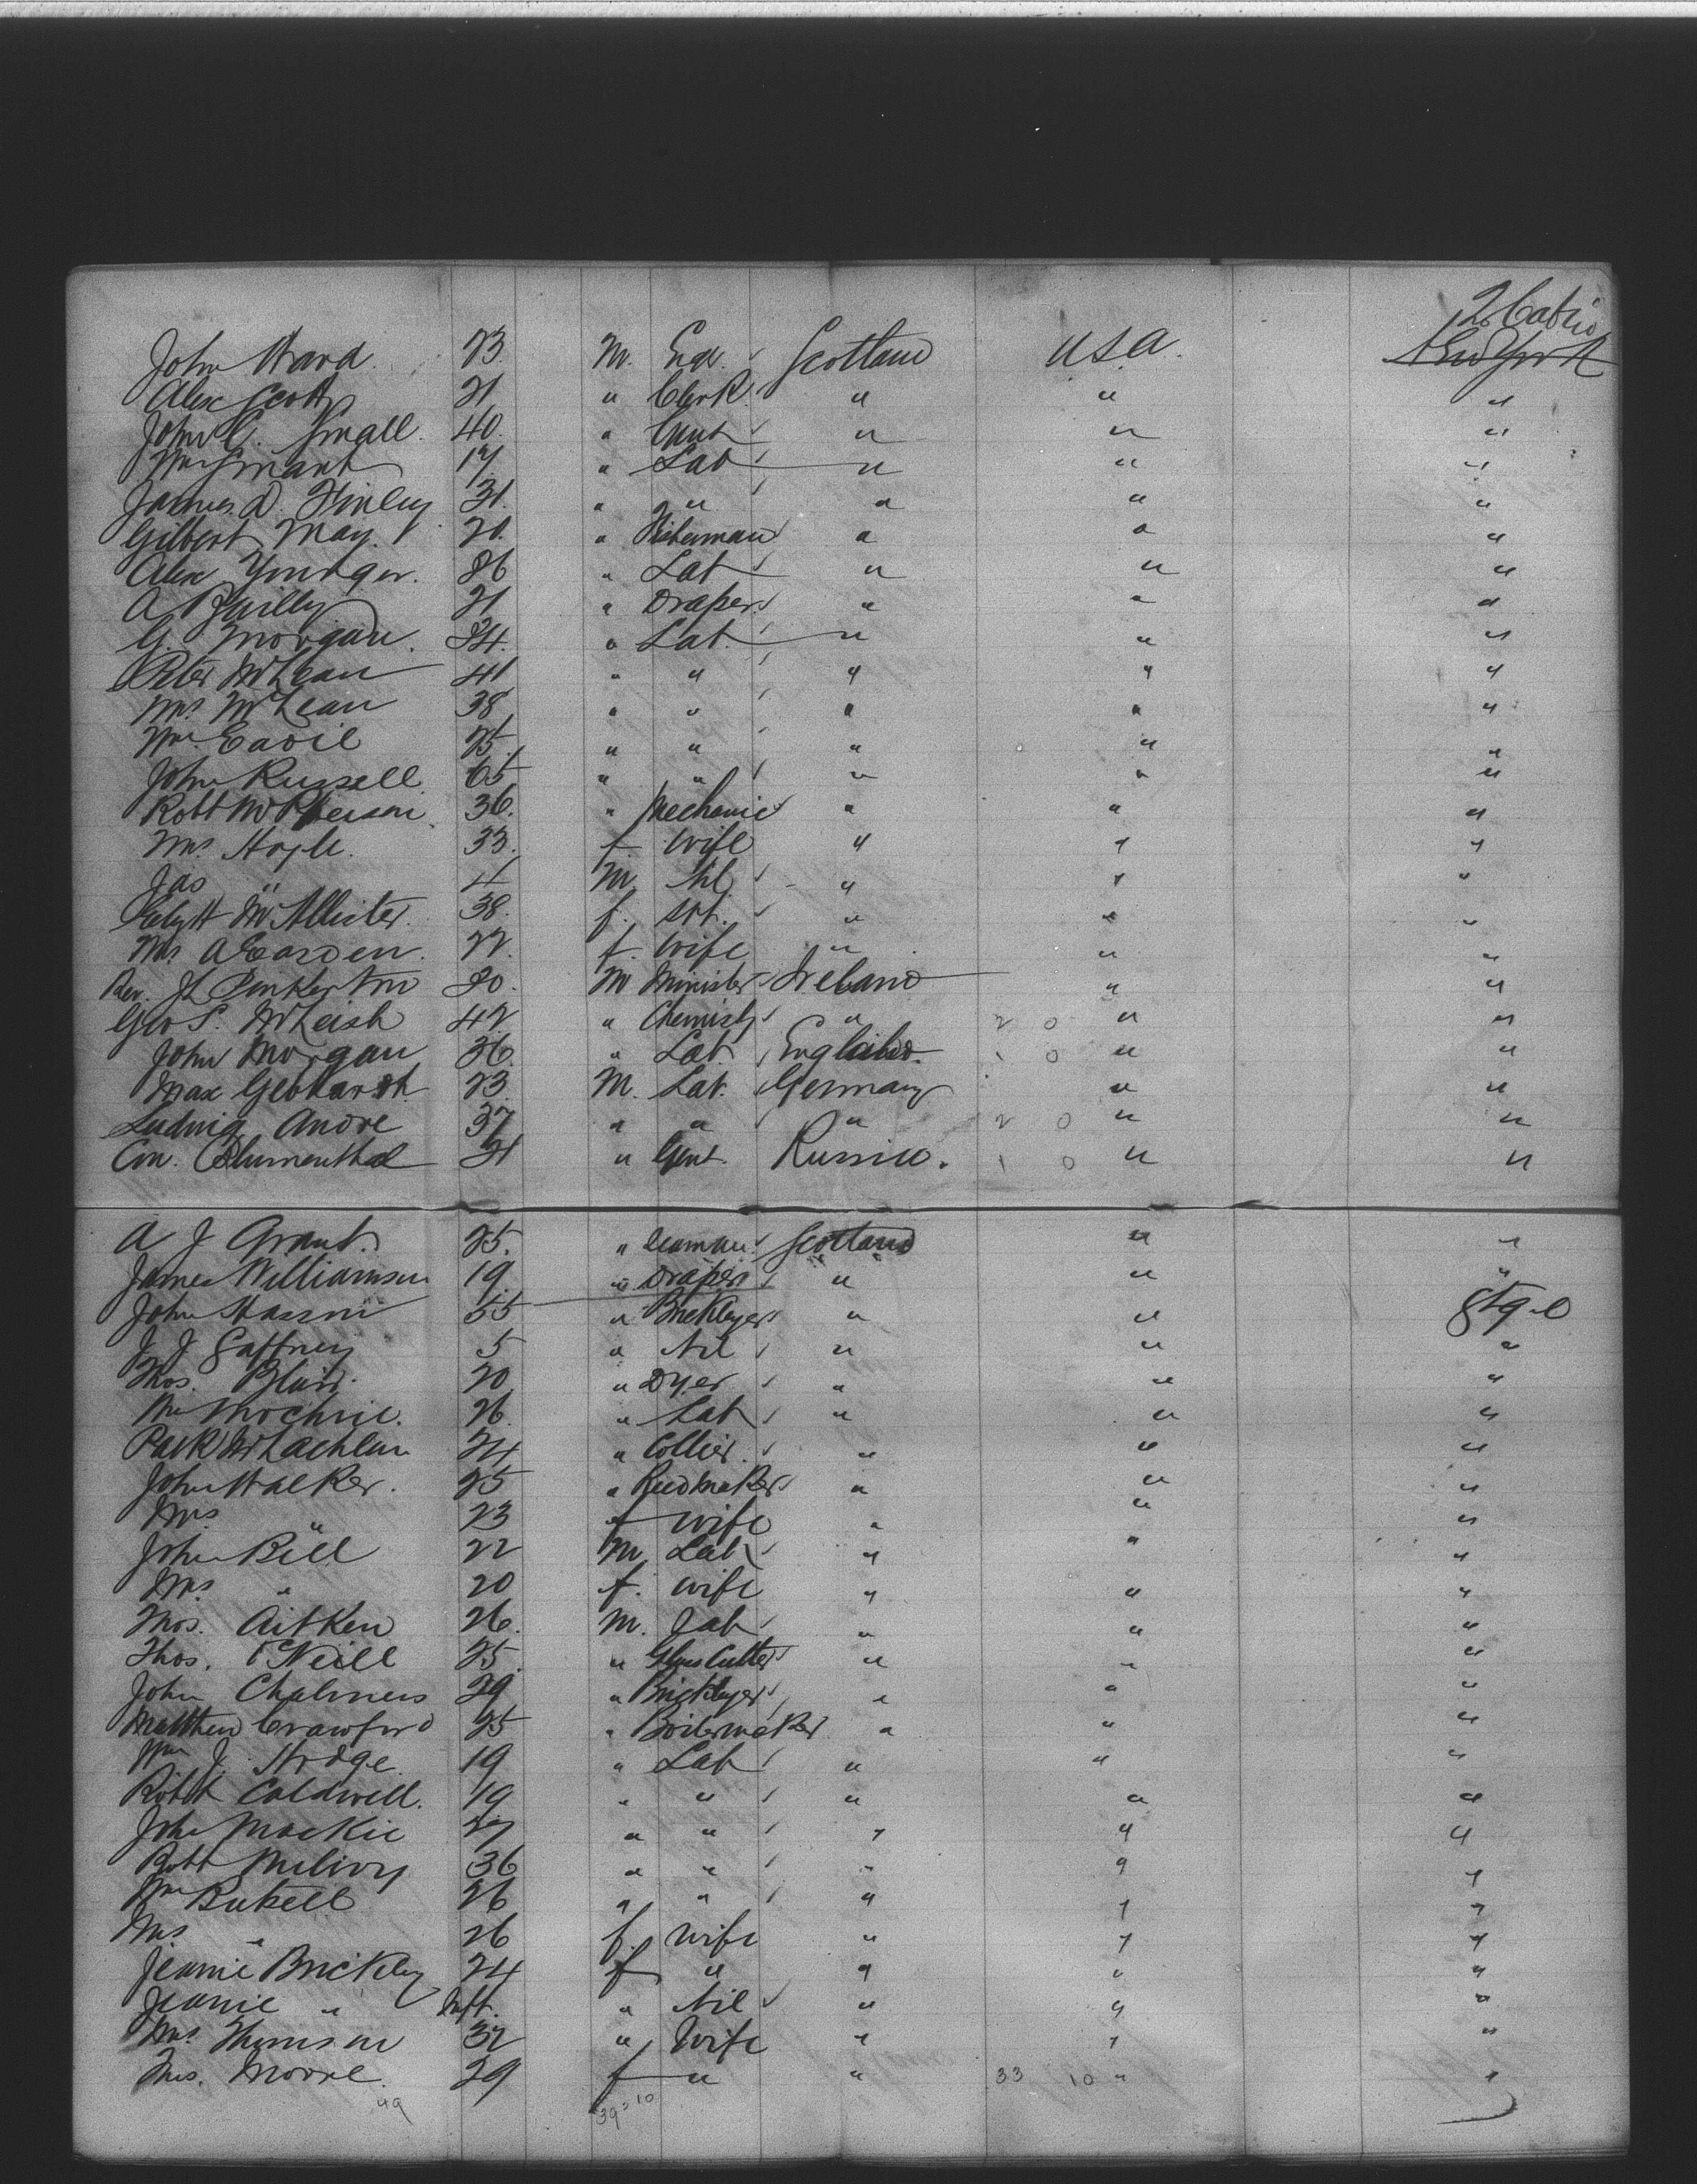 2 Cabin
John Ward. 23 M. Scotland USA. New York
Alex Scott 21 " Clerk " " "
John C. Small. 40. " Gent " " "
Wm Grant 17 " Lab " " "
James D. Finley 31. " " " " "
Gilbert May. 20. " Fisherman " " "
Alex Younger. 26 " Lab " " "
A Reilly 21 " Draper " " "
G. Morgan. 24. " Lab " " "
Peter McLean 41 " " " " "
Mrs McLean 38 " " " " "
Wm 25 " " " " "
John Russell. 65 " " " " "
Robt McPherson. 36. " Mechanic " " "
Mrs. Hoyle. 33. f wife " " "
Jas " 4 M Nil " " "
McAllister. 38. f. " " "
Mrs A 22. f. wife " " "
Rev. Pinkerton 20. M Minister Ireland " "
Geo S. McLeish 42 " Chemist " 2 0 " "
John Morgan 36. " Lab England. 1 0 " "
Max Gebhardt 23. M. Lab. Germany " "
Ludwig Andre 37 " " " 2 0 " "
Con. Blumenthal 21 " Gent. Russia. 1 0 " "
A J Grant. 25. " Seaman Scotland " "
James Williamson 19. " Draper " " "
John 55 " Bricklayer " " Stge
J J Gaffney 5 " Nil " " "
Thos. Blair. 20 " Dyer " " "
Wm Mochrie. 26. " Lab " " "
McLachlan 24 " Collier " " "
John Walker. 25 " Reedmaker " " "
Mrs " 23 f wife " " "
John Bell 22 M Lab " " "
Mrs " 20 f. wife " " "
Thos. Aitken 26. M. Lab " " "
Thos. O'Neill 25. " Glass Cutter " " "
John Chalmers 29 " Bricklayer " " "
Matthew Crawford 25 " Boilermaker " " "
Wm J. Hodge 19 " Lab " " "
Robt Caldwell. 19 " " " " "
John Mackie 27 " " " " "
Robt 36 " " " " "
Wm 26 " " " " "
Mrs " 26 f. wife " " "
Jeanie Brickley 24 f " " " "
Jeanie " Inft. " Nil " " "
Mrs. Thomson 32 " Wife " " "
Mrs. Moore. 29 f " " 33 10 " "
49 39 = 10